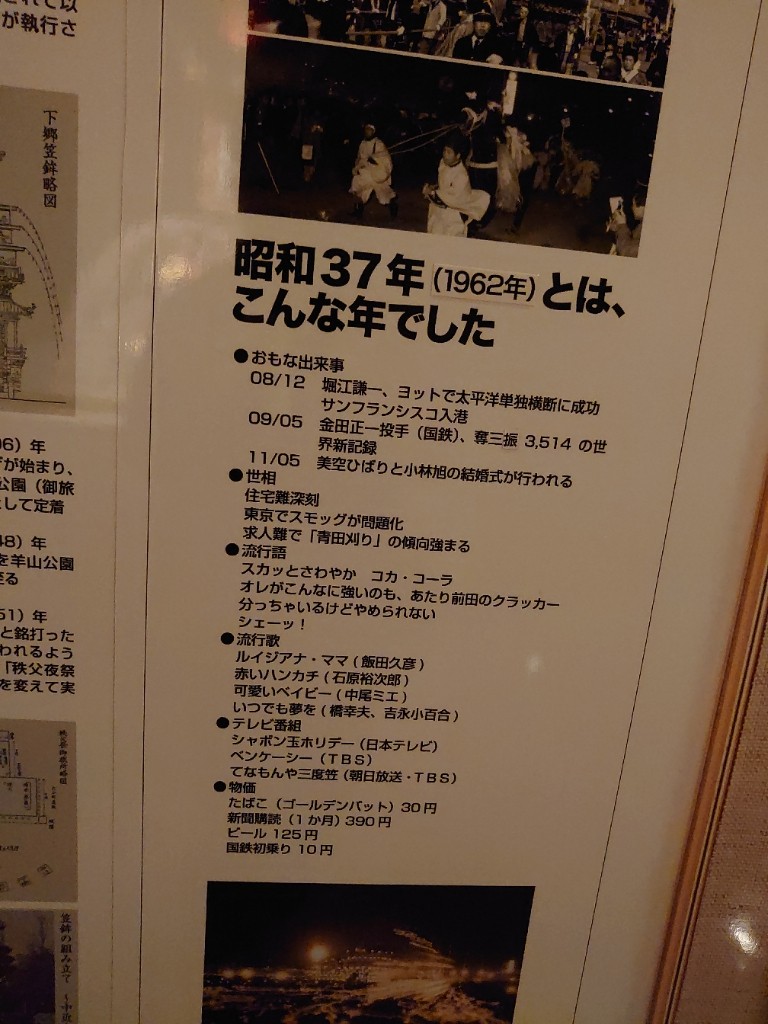 が執行さ
下郷笠鉾略図
年
が始まり、
公園（御旅
して定着
48）年
を羊山公園
至る
51）年
と銘打った
われるよう
「秩父夜祭
を変えて実
笠鉾の組み立て
昭和37年(1962年)とは、
こんな年でした
●おもな出来事
08/12 堀江謙一、ヨットで太平洋単独横断に成功
サンフランシスコ入港
09/05 金田正一投手（国鉄）、奪三振 3,514 の世
界新記録
11/05 美空ひばりと小林旭の結婚式が行われる
●世相
住宅難深刻
東京でスモッグが問題化
求人難で「青田刈り」の傾向強まる
●流行語
スカッとさわやか コカ・コーラ
オレがこんなに強いのも、あたり前田のクラッカー
分っちゃいるけどやめられない
シェーッ！
●流行歌
ルイジアナ・ママ（飯田久彦）
赤いハンカチ（石原裕次郎）
可愛いベイビー（中尾ミエ）
いつでも夢を（橋幸夫、吉永小百合）
●テレビ番組
シャボン玉ホリデー（日本テレビ）
ベンケーシー（TBS）
てなもんや三度笠（朝日放送・TBS）
●物価
たばこ（ゴールデンバット）30円
新聞購読（1か月）390円
ビール 125円
国鉄初乗り 10円